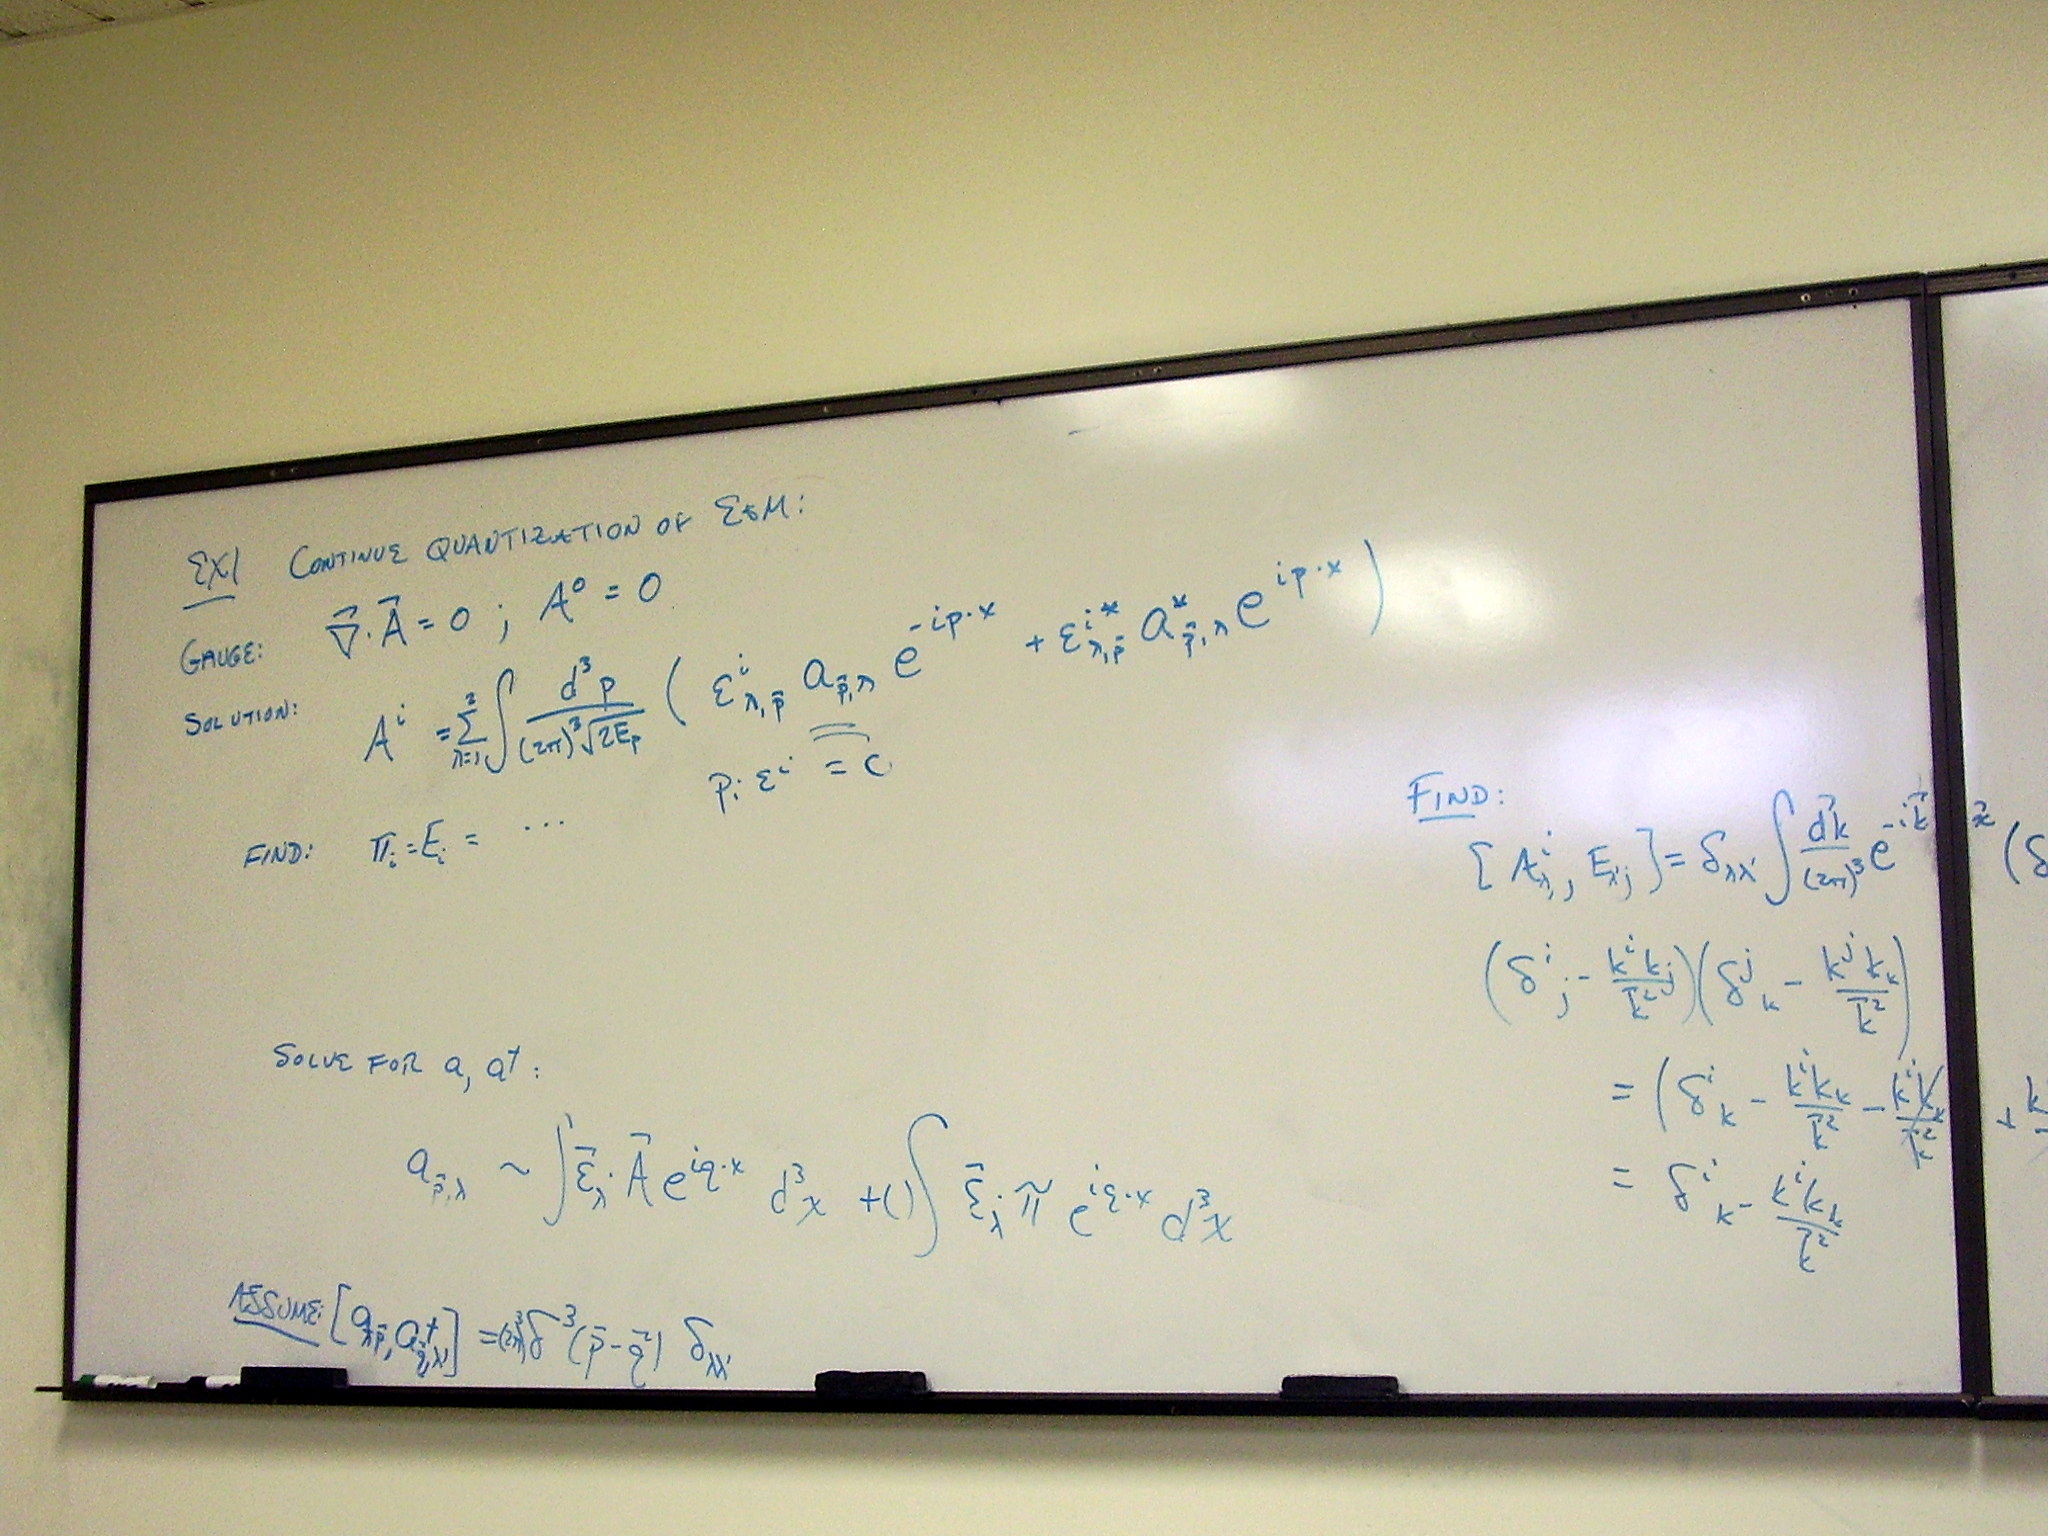 EX1 CONTINUE QUANTIZATION OF E&M:
GAUGE: ∇⃗·A⃗ = 0 ; A⁰ = 0
SOLUTION: Aⁱ = Σ_{λ=1}^{2} ∫ d³p / ((2π)³√(2E_p)) ( εⁱ_{λ,p⃗} a_{p⃗,λ} e^{-ip·x} + ε^{i*}_{λ,p⃗} a*_{p⃗,λ} e^{ip·x} )
p_i εⁱ = 0
FIND: π_i = E_i = ...
SOLVE FOR a, a†:
a_{p⃗,λ} ~ ∫ ε⃗_λ · A⃗ e^{iq·x} d³x + ( ) ∫ ε⃗_λ · π⃗ e^{iq·x} d³x
ASSUME: [a_{λ,p⃗}, a†_{q⃗,λ'}] = (2π)³ δ³(p⃗-q⃗) δ_{λλ'}
FIND:
[Aⁱ_λ, E_{λ'j}] = δ_{λλ'} ∫ dk⃗/(2π)³ e^{-ik⃗·x⃗} (δ
(δⁱ_j - kⁱk_j/k⃗²)(δʲ_k - kʲk_k/k⃗²)
= (δⁱ_k - kⁱk_k/k⃗² - kⁱk_k/k⃗² + k
= δⁱ_k - kⁱk_k/k⃗²